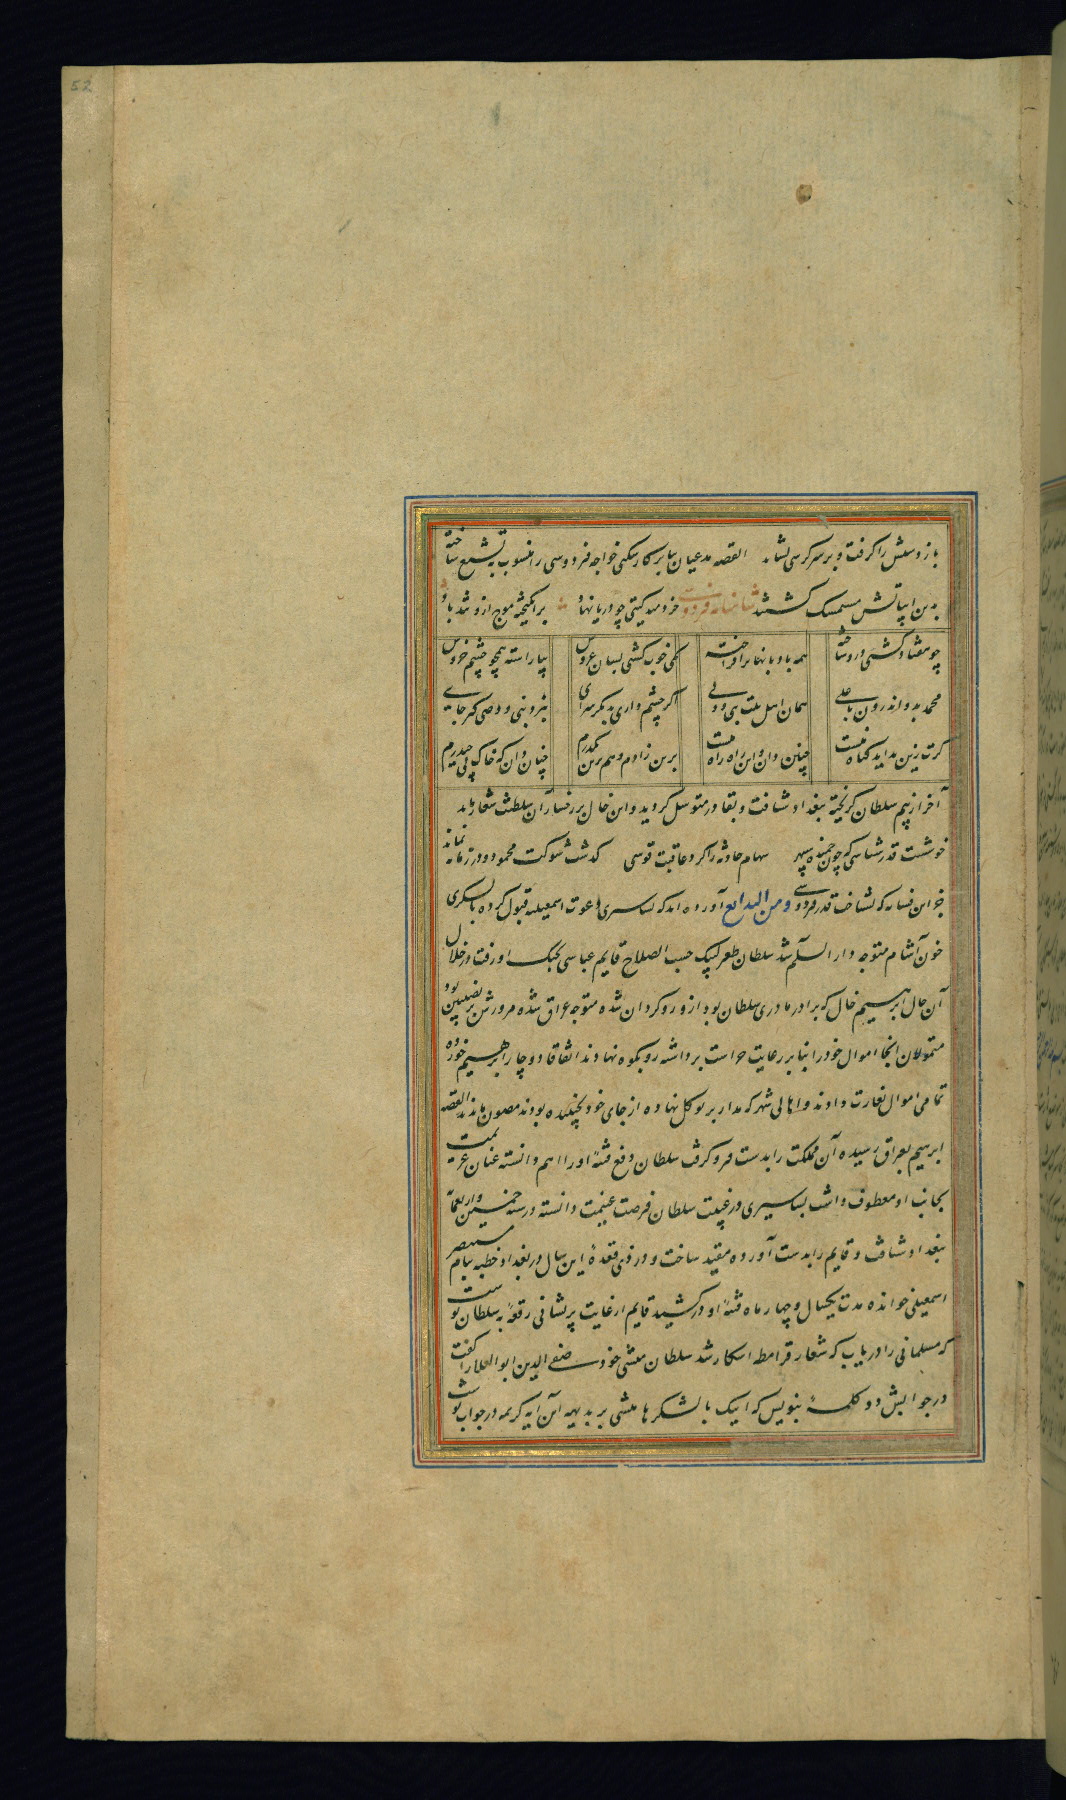 52
باز و سلش را گرفت و بر سر کرسی نشاند القصه مدعیان بنابر کارشکنی خواجه فردوسی را منسوب به تشیع ساخته
بدین ابیاتش متمسک گشتند شاهنامه فردوسی خردمند گیتی چو دریا نهاد برانگیخته موج ازو تندباد
چو هفتاد کشتی درو ساخته همه بادبانها برافراخته یکی خوب کشتی بسان عروس بیاراسته همچو چشم خروس
محمد بدو اندرون با علی همان اهل بیت نبی و ولی اگر چشم داری بدیگر سرای بنزد نبی و وصی گیر جای
گرت زین بد آید گناه منست چنین دان و این راه راه منست برین زادم و هم برین بگذرم چنان دان که خاک پی حیدرم
آخر از بیم سلطان گریخته ببغداد شتافت و بقادر متوسل گردید و این خال بر رخسار آن سلطنت شعار ماند
خوشست قدرشناسی که چون خمیده سپهر سهام حادثه را کرد عاقبت قوسی گذشت شوکت محمود و در زمانه نماند
جز این فسانه که نشناخت قدر فردوسی ومن البدایع آورده اند که بساسیری دعوت اسمعیلیه قبول کرده با لشکری
خون آشام متوجه دار السلام شد سلطان طغرلبیک حسب الصلاح قایم عباسی بجنگ او رفت در خلال
آن حال ابرهیم خال که برادر مادری سلطان بود ازو روگردان شده متوجه عراق شده مرورش بر نصیبین بود
متمولان آنجا اموال خود را بنابر رعایت حراست برداشته رو بکوه نهادند اتفاقا دوچار ابرهیم خورده
تمامی اموال بغارت دادند و اهالی شهر که مدار بر توکل نهاده از جای خود نجنبیده بودند مصون ماندند القصه
ابرهیم بعراق رسیده آن مملکت را بدست فرو گرفت سلطان دفع فتنهٔ او را اهم دانسته عنان عزیمت
بجانب او معطوف داشت بساسیری در غیبت سلطان فرصت غنیمت دانسته در سنه خمسین و اربعمائة
ببغداد شتافت و قایم را بدست آورده مقید ساخت و در ذی قعدهٔ این سال در بغداد خطبه بنام مستنصر
اسمعیلی خوانده مدت یکسال و چهار ماه فتنهٔ او درکشید قایم از غایت پریشانی رقعهٔ به سلطان نوشت
که مسلمانی را دریاب که شعار قرامطه آشکار شد سلطان منشی خود صفی الدین ابو العلا را گفت
در جوابش دو کلمهٔ بنویس که اینک با لشکرها منشی بر بدیهه این آیه کریمه در جواب نوشت